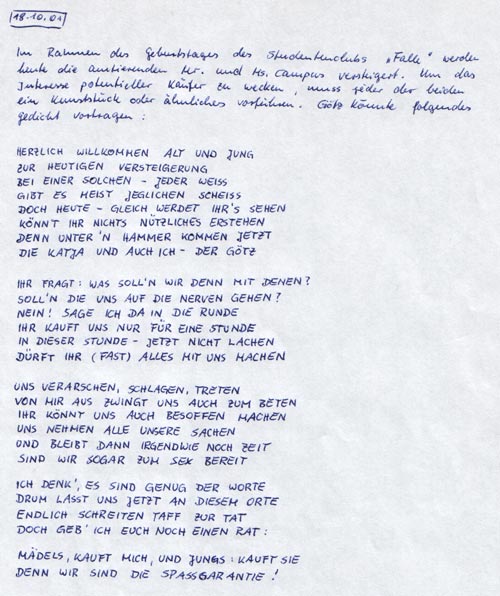 18.10.01
Im Rahmen des Geburtstages des Studentenclubs „Falle" werden
heute die amtierenden Mr. und Ms. Campus versteigert. Um das
Interesse potentieller Käufer zu wecken, muss jeder der beiden
ein Kunststück oder ähnliches vorführen. Götz könnte folgendes
Gedicht vortragen:
HERZLICH WILLKOMMEN ALT UND JUNG
ZUR HEUTIGEN VERSTEIGERUNG
BEI EINER SOLCHEN - JEDER WEISS
GIBT ES MEIST JEGLICHEN SCHEISS
DOCH HEUTE - GLEICH WERDET IHR'S SEHEN
KÖNNT IHR NICHTS NÜTZLICHES ERSTEHEN
DENN UNTER'N HAMMER KOMMEN JETZT
DIE KATJA UND AUCH ICH - DER GÖTZ
IHR FRAGT: WAS SOLL'N WIR DENN MIT DENEN?
SOLL'N DIE UNS AUF DIE NERVEN GEHEN?
NEIN! SAGE ICH DA IN DIE RUNDE
IHR KAUFT UNS NUR FÜR EINE STUNDE
IN DIESER STUNDE - JETZT NICHT LACHEN
DÜRFT IHR (FAST) ALLES MIT UNS MACHEN
UNS VERARSCHEN, SCHLAGEN, TRETEN
VON MIR AUS ZWINGT UNS AUCH ZUM BETEN
IHR KÖNNT UNS AUCH BESOFFEN MACHEN
UNS NEHMEN ALLE UNSERE SACHEN
UND BLEIBT DANN IRGENDWIE NOCH ZEIT
SIND WIR SOGAR ZUM SEX BEREIT
ICH DENK', ES SIND GENUG DER WORTE
DRUM LASST UNS JETZT AN DIESEM ORTE
ENDLICH SCHREITEN TAFF ZUR TAT
DOCH GEB' ICH EUCH NOCH EINEN RAT:
MÄDELS, KAUFT MICH, UND JUNGS: KAUFT SIE
DENN WIR SIND DIE SPASSGARANTIE!